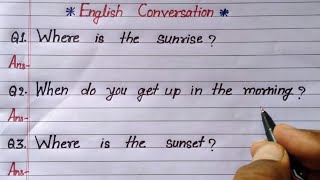 * English Conversation *
Q1. Where is the sunrise?
Ans-
Q2- When do you get up in the morning?
Ans-
Q3. Where is the sunset?
Ans-